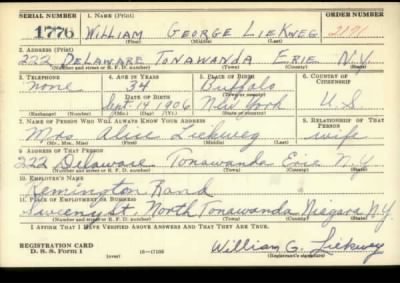 SERIAL NUMBER 1. NAME (Print) ORDER NUMBER
1776 WILLIAM GEORGE LIEKWEG 2191
(First) (Middle) (Last)
2. ADDRESS (Print)
222 DELAWARE TONAWANDA ERIE N.Y.
(Number and street or R. F. D. number) (Town) (County) (State)
3. TELEPHONE 4. AGE IN YEARS 5. PLACE OF BIRTH 6. COUNTRY OF CITIZENSHIP
none 34 Buffalo
DATE OF BIRTH (Town or county)
Sept. 14 1906 New York U.S
(Exchange) (Number) (Mo.) (Day) (Yr.) (State or country)
7. NAME OF PERSON WHO WILL ALWAYS KNOW YOUR ADDRESS 8. RELATIONSHIP OF THAT PERSON
Mrs Alice Liekweg wife
(Mr., Mrs., Miss) (First) (Middle) (Last)
9. ADDRESS OF THAT PERSON
222 Delaware Tonawanda Erie N.Y
(Number and street or R. F. D. number) (Town) (County) (State)
10. EMPLOYER'S NAME
Remington Rand
11. PLACE OF EMPLOYMENT OR BUSINESS
North Tonawanda Niagara N.Y.
(Number and street or R. F. D. number) (Town) (County) (State)
I AFFIRM THAT I HAVE VERIFIED ABOVE ANSWERS AND THAT THEY ARE TRUE.
REGISTRATION CARD
D. S. S. Form 1 (over) William G. Liekweg
(Registrant's signature)